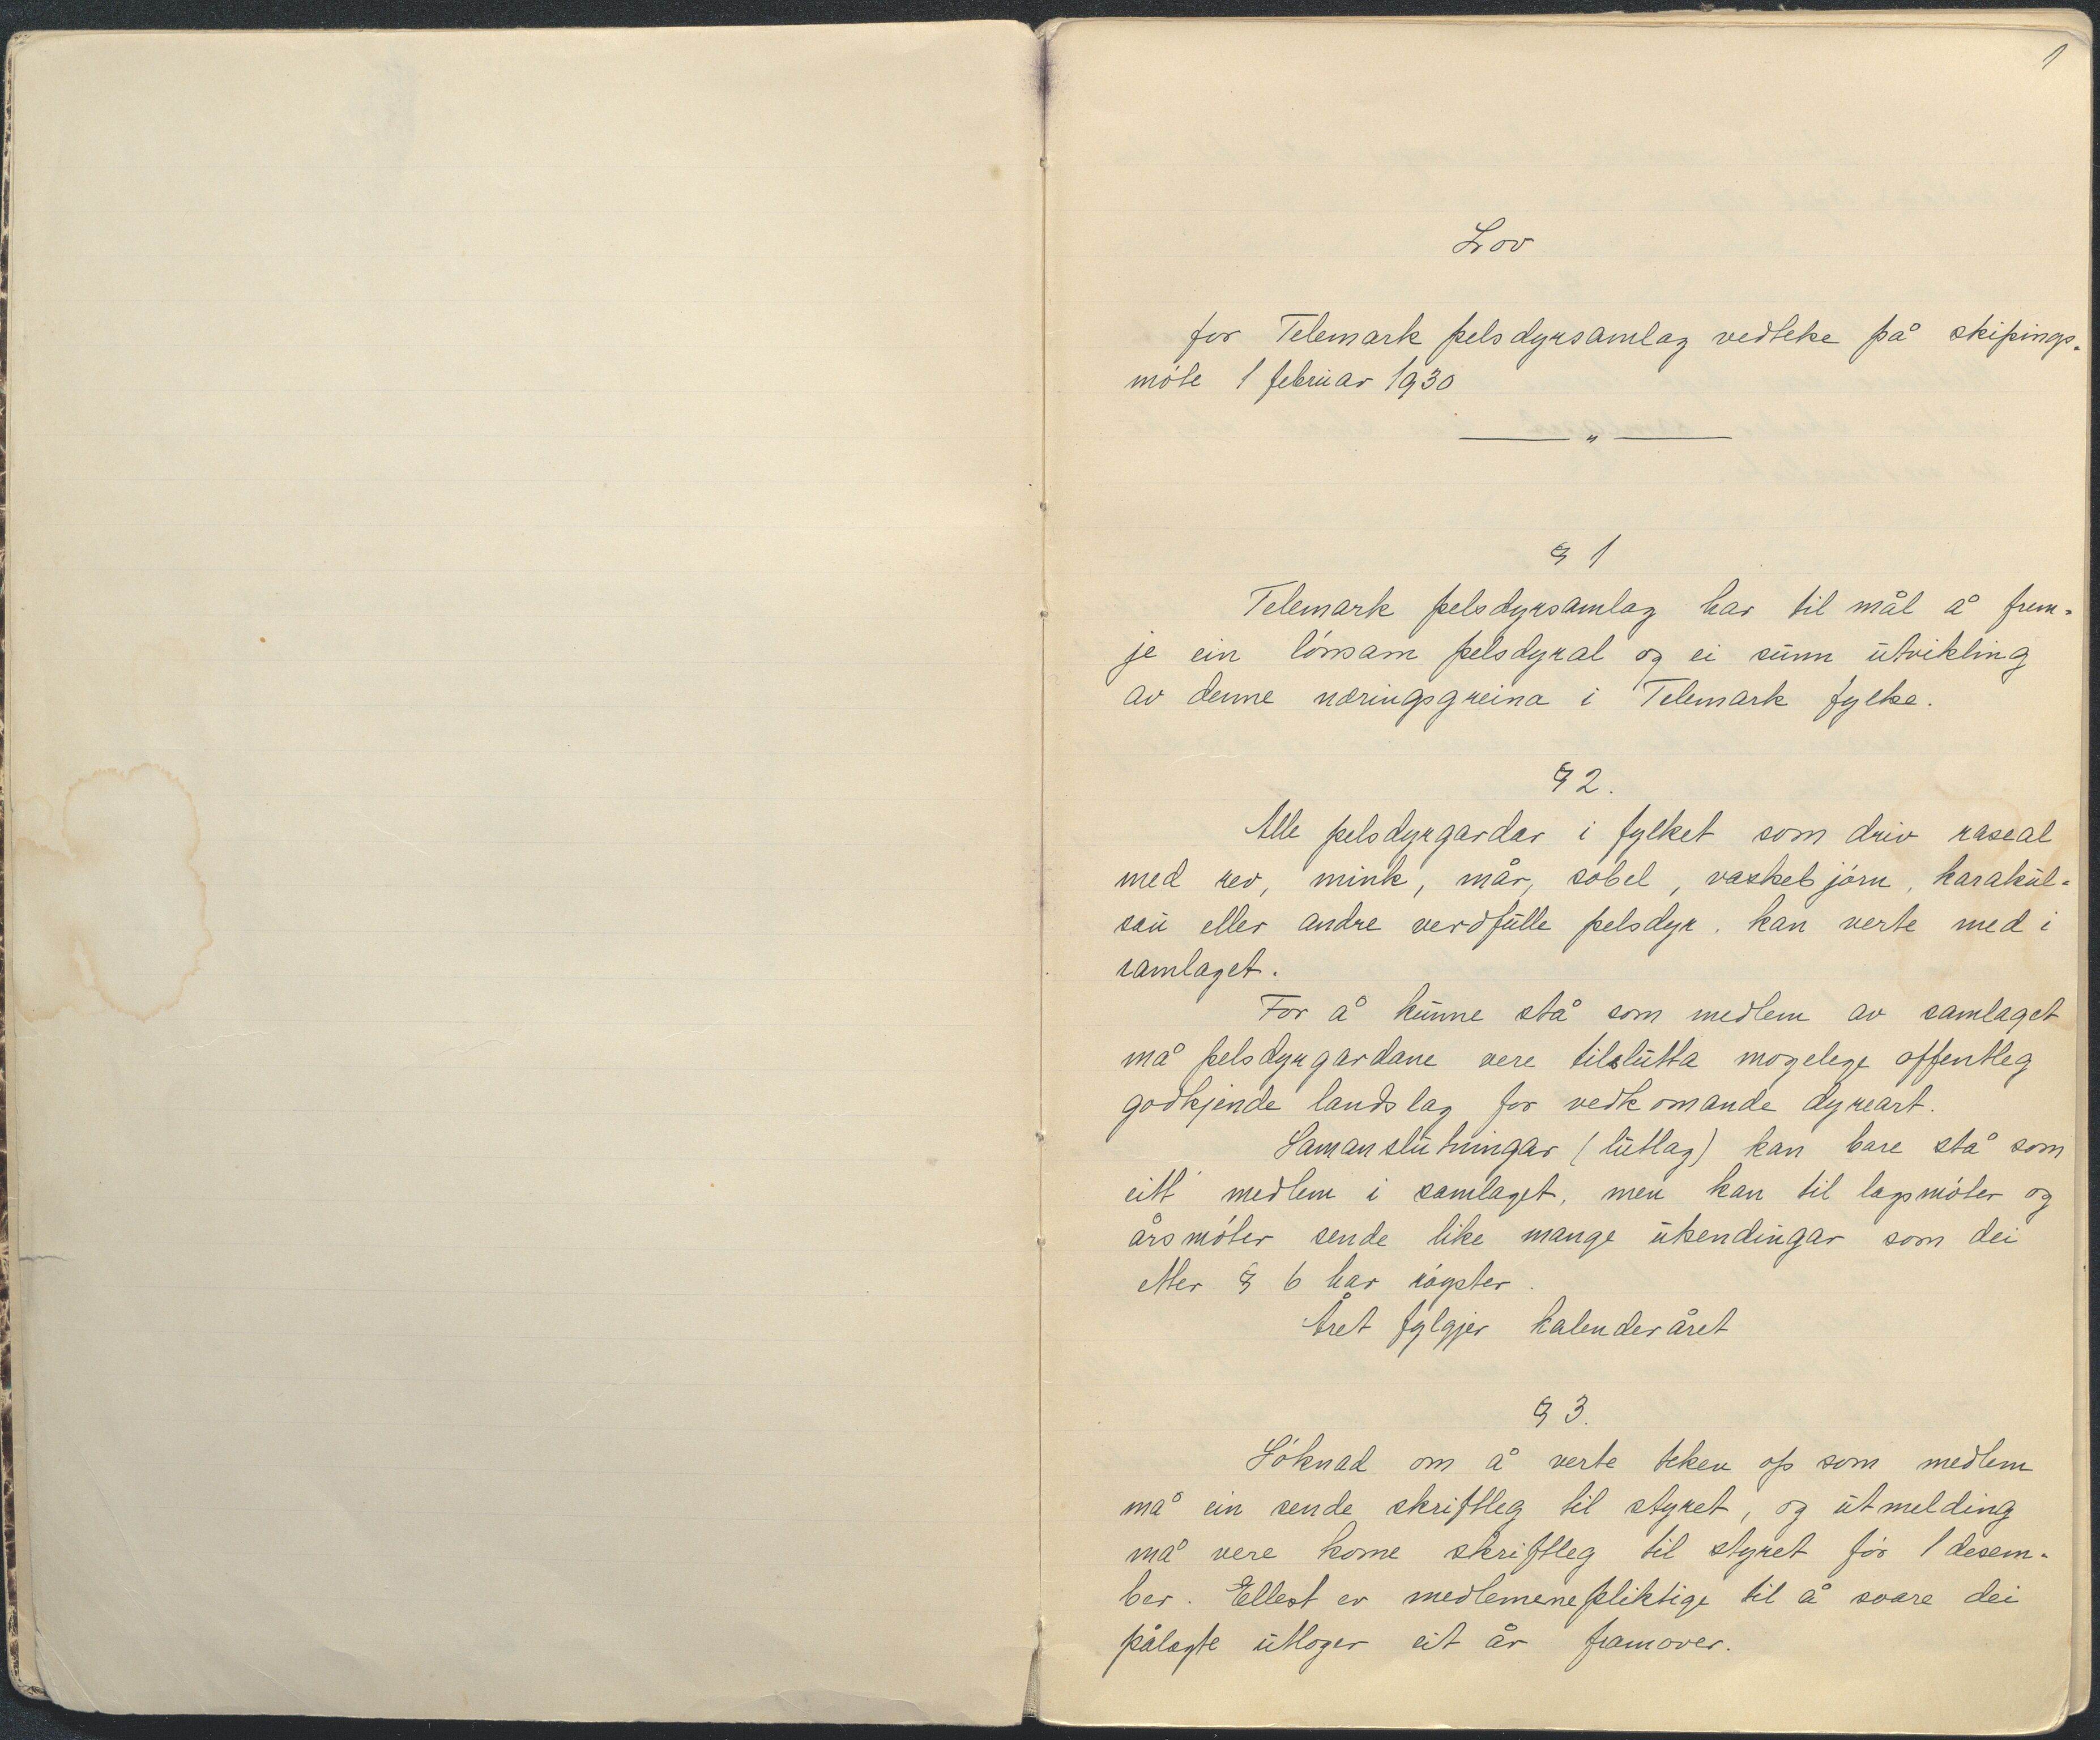 1
Lov
for Telemark pelsdyrsamlag vedteke på skipings-
móte 1 februar 1930
§ 1
Telemark pelsdyrsamlag har til mål å frem-
je ein lónsam pelsdyral og ei sunn utvikling
av denne næringsgreina i Telemark fylke.
§ 2.
Alle pelsdyrgardar i fylket som driv raseal
med rev, mink, mår, sobel, vaskebjórn, karakul-
sau eller andre verdfulle pelsdyr, kan verte med i
samlaget.
For å kunne stå som medlem av samlaget
må pelsdyrgardane vere tilslutta mogelege offentleg
godkjende landslag for vedkomande dyreart.
Samanslutningar (lutlag) kan bare stå som
eitt medlem i samlaget, men kan til lagsmóter og
årsmóter sende like mange utsendingar som dei
etter § 6 har róyster.
Året fylgjer kalenderåret
§ 3.
Sóknad om å verte teken op som medlem
må ein sende skriftleg til styret, og utmelding
må vere kome skriftleg til styret fór 1 desem-
ber. Ellest er medlemene pliktige til å svare dei
pålagte utloger eit år framover.